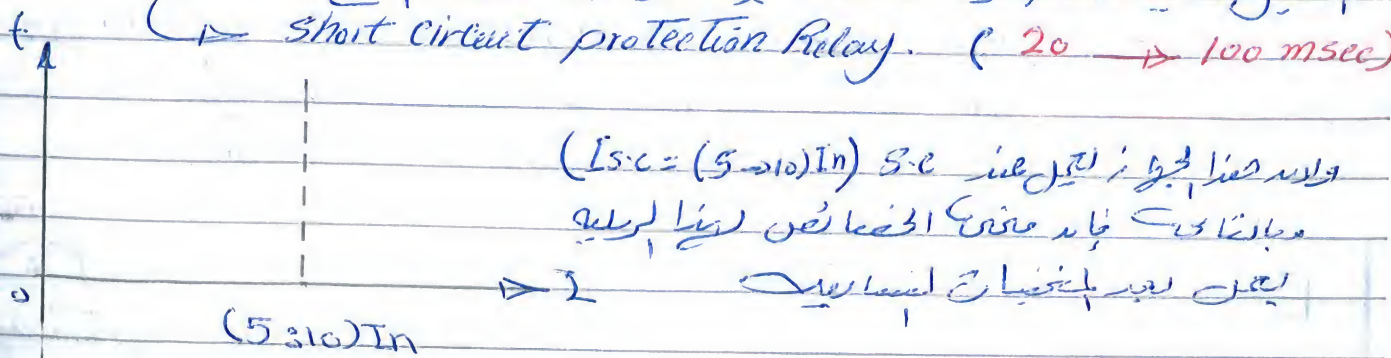 t
short circuit protection Relay. ( 20 → 100 msec)
ولان هذا الجهاز يعمل عند S.C (Is.c = (5→10)In)
وبالتالى فإن منحنى الخصائص لهذا الريليه
يعمل بعد المنحنيات
I
0
(5→10)In